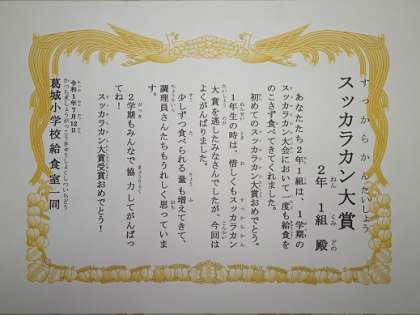 すっからかんたいしょう
スッカラカン大賞
ねん くみ どの
２年 １組 殿
あなたたち２年１組は、１学期の
スッカラカン大会において一度も給食を
のこさず食べてきてくれました。
初めてのスッカラカン大賞おめでとう。
１年生の時は、惜しくもスッカラカン
大賞を逃したみなさんでしたが、今回は
よくがんばりました。
少しずつ食べられる量も増えてきて、
調理員さんたちもうれしく思っていま
す。
２学期もみんなで協力してがんばっ
てね！
スッカラカン大賞受賞おめでとう！
令和１年７月１２日
葛城小学校給食室一同